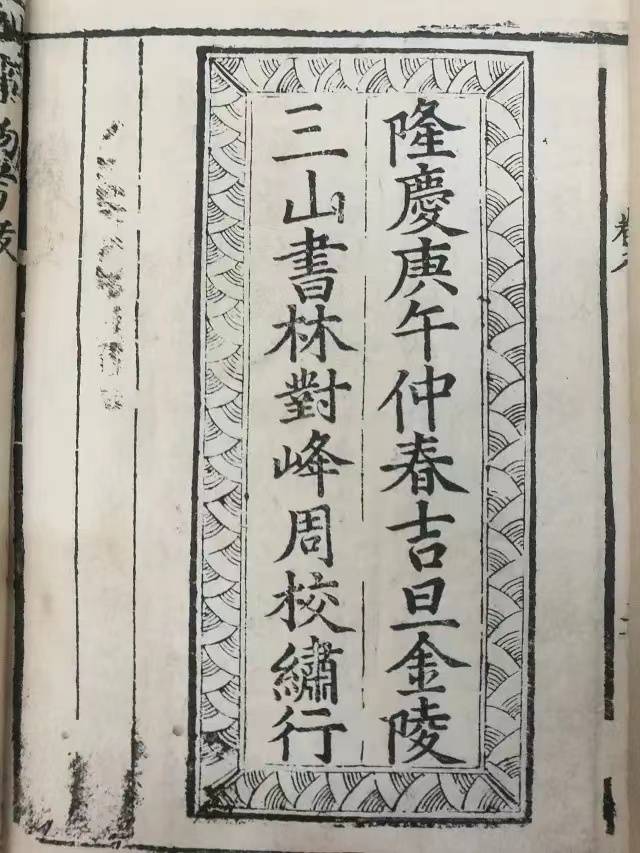 隆慶庚午仲春吉旦金陵
三山書林對峰周校繡行